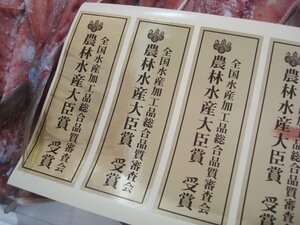 全国水産加工品総合品質審査会
農林水産大臣賞 受賞
全国水産加工品総合品質審査会
農林水産大臣賞 受賞
全国水産加工品総合品質審査会
農林水産大臣賞 受賞
農林水産大臣賞